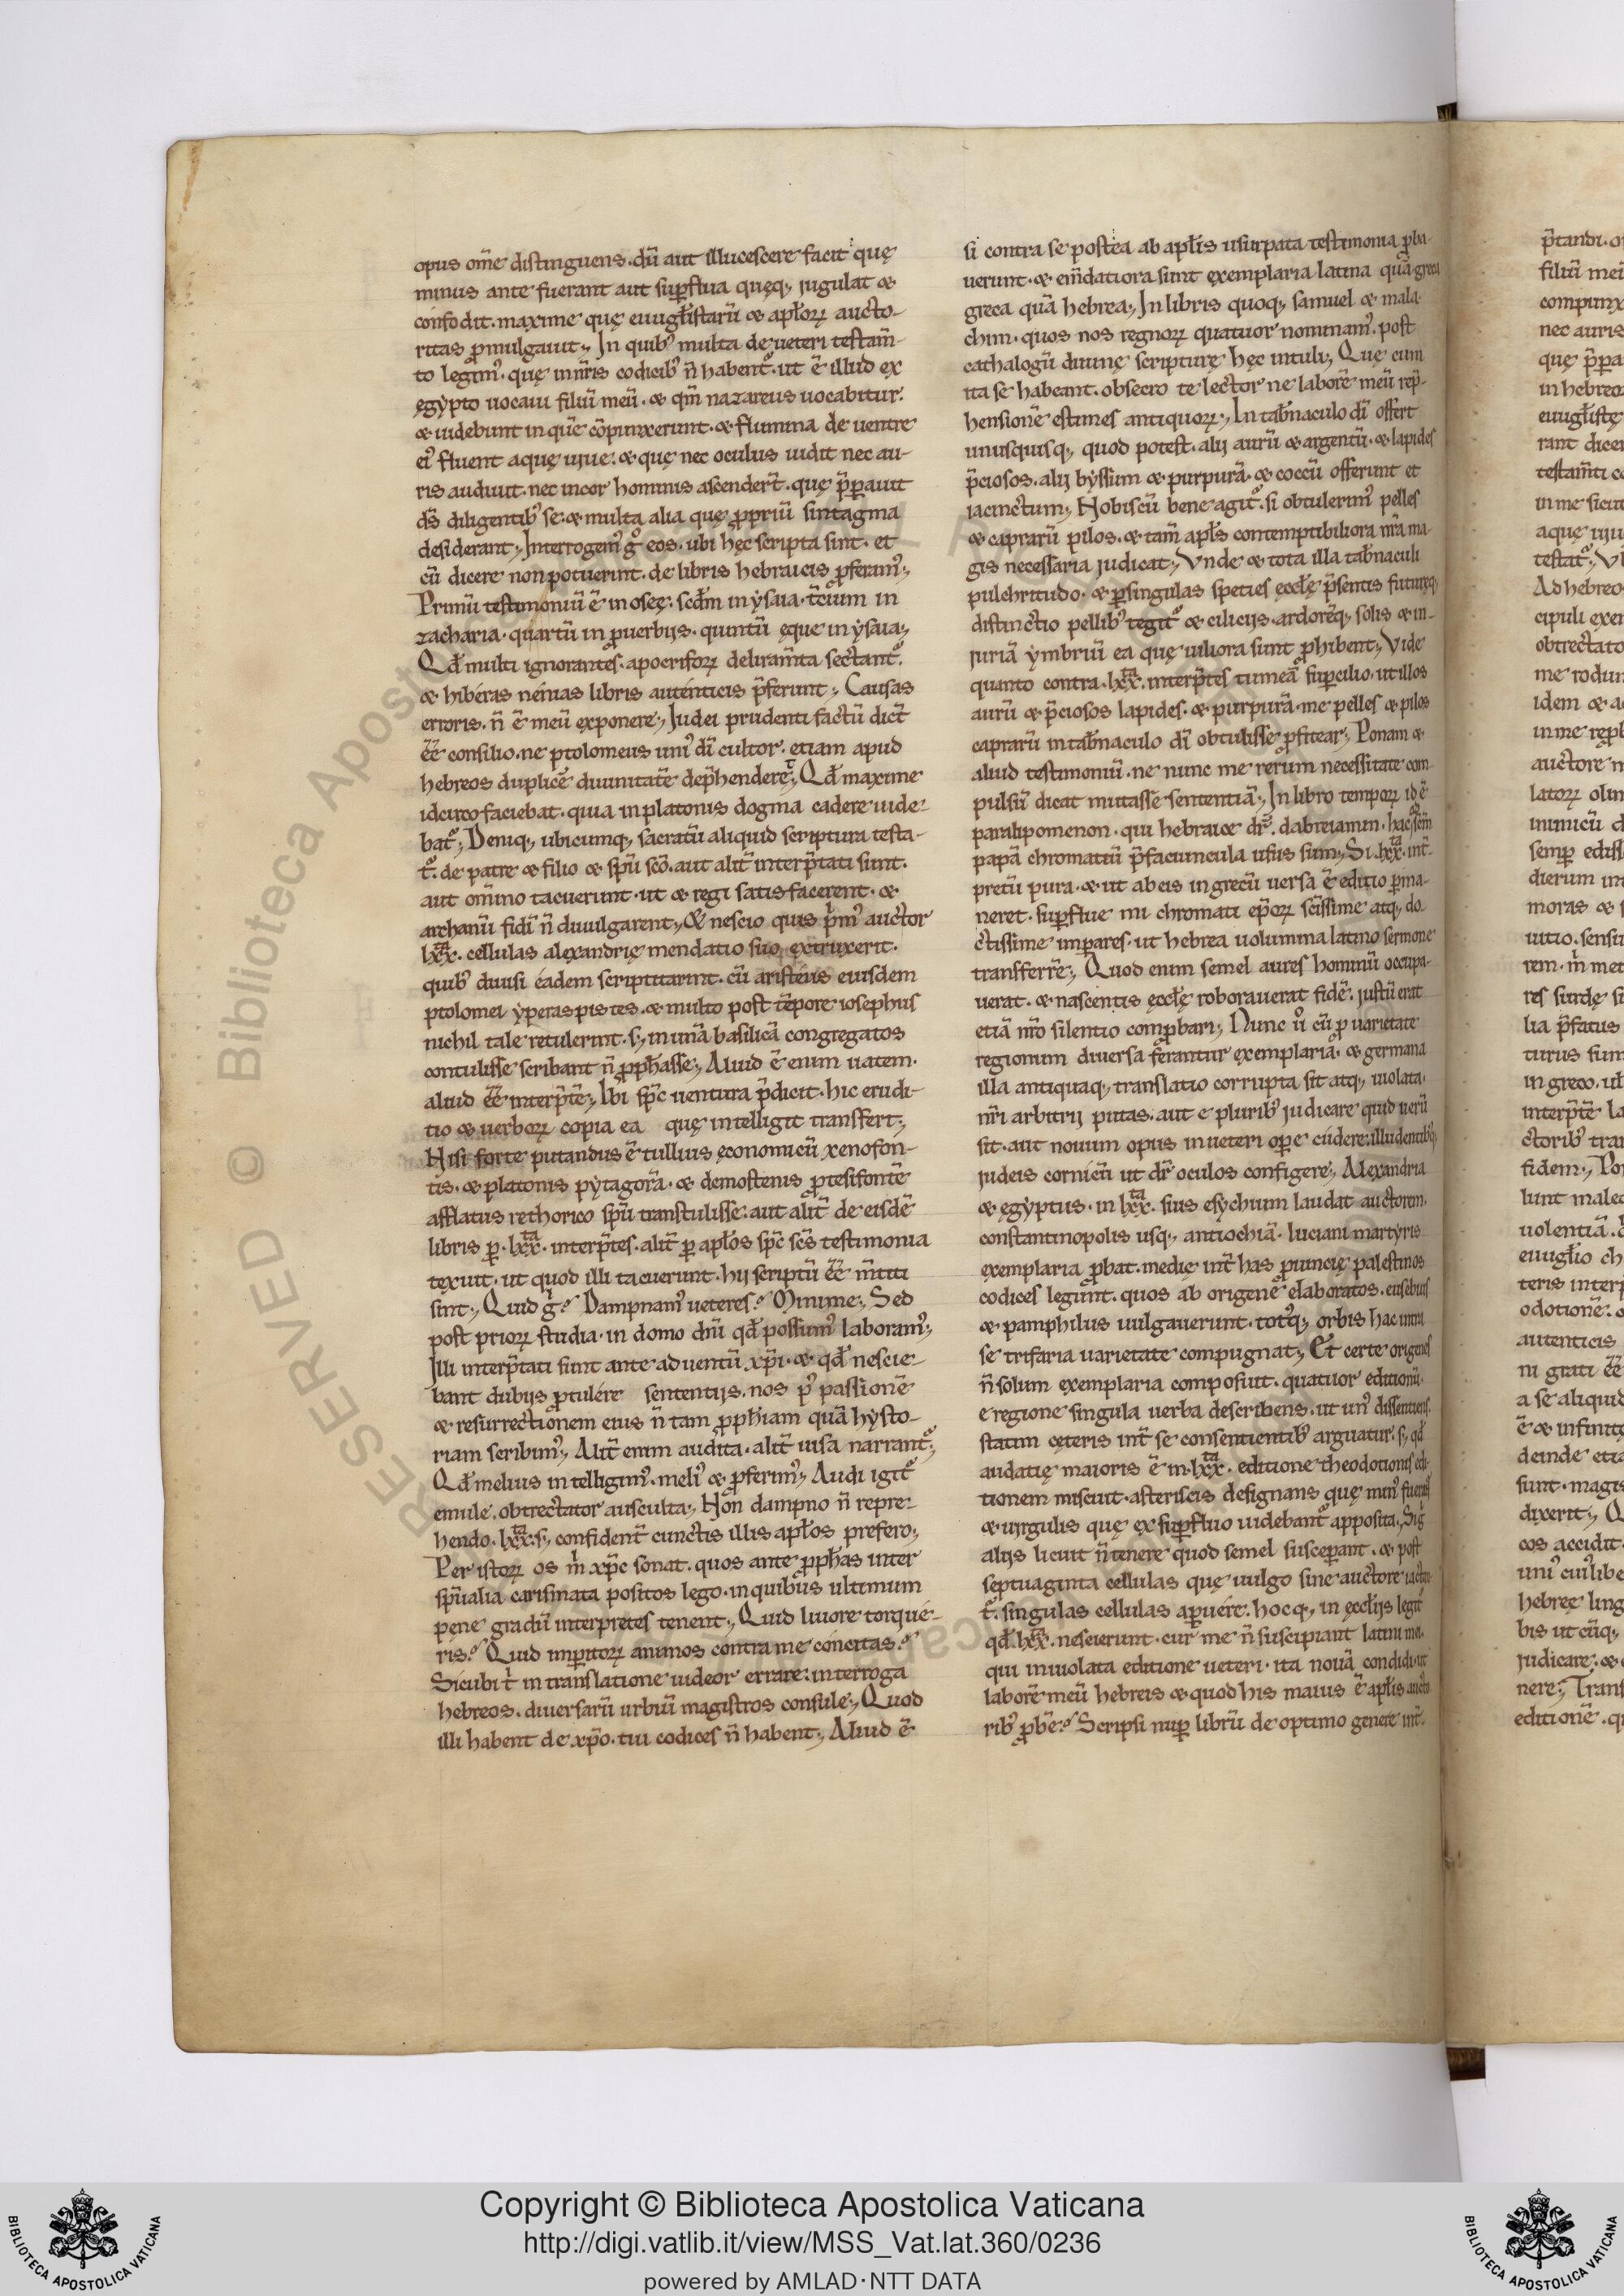 opus om̅e distinguens. dū aut illucescere facit quę
minus ante fuerant aut suꝑflua quęq; iugulat &
confodit. maxime quę euuglistarū & apłoꝝ aucto-
ritas ꝓmulgauit; In quib; multa de ueteri testam̅-
to legim᷒. quę in nr̅is codicib; n̅ habent᷑. ut ē illud ex
ęgypto uocaui filiū meū. & qm̅ nazareus uocabitur.
& uidebunt in quē cōpunxerunt. & flumina de uentre
ei᷒ fluent aquę uiue. & quę nec oculus uidit nec au-
ris audiuit. nec in cor hominis ascender̅t. quę p̅parauit
ds̅ diligentib; se. & multa alia quę ꝓpriū sintagma
desiderant; Interrogem᷒ g° eos. ubi hęc scripta sint. et
cū dicere non potuerint. de libris hebraicis ꝓferam᷒;
Primū testimoniū ē in oseę. scdm̅ in ysaia. t̅cium in
zacharia. quartū in ꝓuerbijs. quintū ęque in ysaia;
Qđ multi ignorantes. apocrifoꝝ deliram̅ta sectant᷑.
& hiberas nenias libris autenticis p̅ferunt; Causas
erroris. n̅ ē meū exponere; Iudei prudenti factū dict̅
ēē consilio. ne ptolomeus uni᷒ di̅ cultor. etiam apud
hebreos duplicē diuinitatē dep̅henderet; Qđ maxime
idcirco faciebat. quia in platonis dogma cadere uide-
bat᷑; Deniq; ubicumq; sacratū aliquid scriptura testa-
t᷑. de patre & filio & spū sc̅o. aut alit̅ interp̅tati sunt.
aut om̅ino tacuerunt. ut & regi satis facerent. &
archanū fidi̅ n̅ diuulgarent; & nescio quis p̅m᷒ auctor
lxx̅ta. cellulas alexandrię mendatio suo extruxerit.
quib; diuisi eadem scriptitarint. cū aristeus eiusdem
ptolomei yperaspistes. & multo post tēpore iosephus
nichil tale retulerint. s; in unā basilicā congregatos
contulisse scribant n̅ ꝓphasse; Aliud ē enim uatem.
aliud ēē interp̅tē; Ibi spc̅ uentura p̅dicit. hic erudi-
tio & uerboꝝ copia ea quę intelligit transfert;
Nisi forte putandus ē tullius ęconomicū xenofon-
tis. & platonis pytagorā. & demostenis ꝓtesifontē
afflatus rethorico spū transtulisse. aut alit̅ de eisdē
libris ꝑ. lxx̅ta. interp̅tes. alit̅ ꝑ apłos spc̅ sc̅s testimonia
texuit. ut quod illi tacuerunt. hij scriptū ēē m̅titi
sint; Quid g°? Dampnam᷒ ueteres? Minime; Sed
post prioꝝ studia. in domo dn̅i qđ possum᷒ laboram᷒;
Illi interp̅tati sunt ante aduentū xp̅i. & qđ nescie-
bant dubijs ꝓtulere sententijs. nos p᷒ passionē
& resurrectionem eius n̅ tam ꝓphiam quā hysto-
riam scribim᷒; Alit̅ enim audita. alit̅ uisa narrant᷑;
Qđ melius intelligim᷒. meli᷒ & ꝓferim᷒; Audi igit᷑
emule. obtrectator ausculta; Non dampno n̅ repre-
hendo. lxx̅ta. s; confident̅ cunctis illis apłos prefero;
Per istoꝝ os m̅ xpc̅ sonat. quos ante ꝓphas inter
sp̅ualia carismata positos lego. in quibus ultimum
pene gradū interpretes tenent; Quid liuore torque-
ris? Quid imperitoꝝ animos contra me concitas?
Sicubi t̅ in translatione uideor errare. interroga
hebreos. diuersarū urbiū magistros consule; Quod
illi habent de xp̅o. tui codices n̅ habent; Aliud ē
si contra se postea ab apłis usurpata testimonia ꝓba-
uerunt. & em̅datiora sunt exemplaria latina quā greca
greca quā hebrea; In libris quoq; samuel & mala-
chim. quos nos regnoꝝ quatuor nominam᷒. post
cathalogū diuinę scripturę hęc intuli; Quę cum
ita se habeant. obsecro te lector ne laborē meū rep̅-
hensionē estimes antiquoꝝ; In tab̅naculo di̅ offert
unusquisq; quod potest. alij aurū & argentū. & lapides
p̅ciosos. alij byssum & purpurā. & coccū offerunt et
iacinctum; Nobiscū bene agit᷑. si obtulerim᷒ pelles
& caprarū pilos. & tam̅ apłs contemptibiliora nr̅a ma-
gis necessaria iudicat; Vnde & tota illa tab̅naculi
pulchritudo. & ꝑ singulas species ęccłę p̅sentis futuręq;
distinctio pellib; tegit᷑ & cilicijs. ardorēq; solis & in-
iuriā ymbriū ea quę uiliora sunt ꝓhibent; Vide
quanto contra. lxx̅ta. interp̅tes tumeā suꝑcilio. ut illos
aurū & p̅ciosos lapides. & purpurā. me pelles & pilos
caprarū in tab̅naculo di̅ obtulisse ꝓfitear; Ponam &
aliud testimoniū. ne nunc me rerum necessitate com-
pulsū dicat mutasse sententiā; In libro tempoꝝ id ē
paralipomenon. qui hebraice dr̅. dabreiamin. hac
papā chromatiū p̅faciuncula usus sum; Si. lxx̅ta. int̅-
pretū pura. & ut ab eis in grecū uersa ē editio ꝑma-
neret. suꝑflue mi chromati ep̅oꝝ sc̅issime atq; do-
ctissime imꝑares. ut hebrea uolumina latino sermone
transferre̅; Quod enim semel aures hominū occupa-
uerat. & nascentis ęccłę roborauerat fidē. iustū erat
etiā nr̅o silentio comꝓbari; Nunc u° cū ꝓ uarietate
regionum diuersa ferantur exemplaria. & germana
illa antiquaq; translatio corrupta sit atq; uiolata.
nr̅i arbitrij putas. aut e plurib; iudicare quid uerū
sit. aut nouum opus in ueteri oꝑe cudere. illudentib;
iudeis cornicū ut dr̅ oculos configere; Alexandria
& ęgyptus. in lxx̅ta. suis esychium laudat auctorem.
constantinopolis usq; antiochiā. luciani martyris
exemplaria ꝓbat. medię int̅ has ꝓuincię palestinos
codices legunt. quos ab origene elaboratos. eusebius
& pamphilus uulgauerunt. tot᷒q; orbis hac inter
se trifaria uarietate compugnat; Et certe origenes
n̅ solum exemplaria composuit. quatuor editionū.
e regione singula uerba describens. ut un᷒ dissentiens.
statim ceteris int̅ se consentientib; arguatur. s; qđ
audatię maioris ē in. lxx̅ta. editione theodotionis edi-
tionem miscuit. asteriscis designans quę min᷒ fuerant
& uirgulis quę ex suꝑfluo uidebant᷑ apposita. Sig̅
alijs licuit n̅ tenere quod semel susceꝑant. & post
septuaginta cellulas quę uulgo sine auctore iactan-
t᷑. singulas cellulas aꝑuere. hocq; in ęccłijs legit᷑
qđ. lxx̅ta. nescierunt. cur me n̅ suscipiant latini mei.
qui inuiolata editione ueteri. ita nouā condidi. ut
laborē meū hebreis & quod his maius ē apłis aucto-
rib; ꝓbē? Scripsi nuꝑ librū de optimo genere int̅-
Copyright © Biblioteca Apostolica Vaticana
http://digi.vatlib.it/view/MSS_Vat.lat.360/0236
powered by AMLAD·NTT DATA